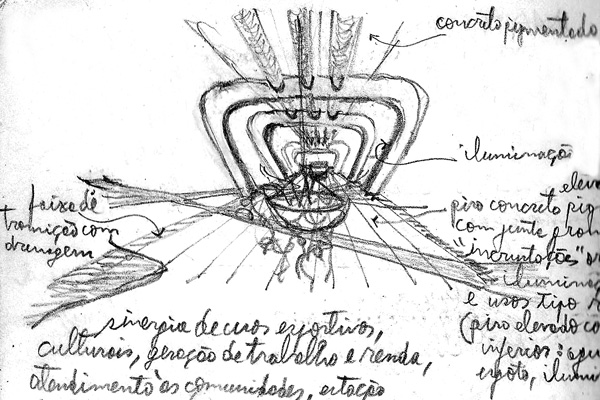 concreto pigmentado
iluminação
faixa de
transição com
drenagem
eleva
piso concreto pig
com junte
"incrustações"
iluminaç
e usos tipo
(piso elevado co
infercos: agu
esgoto, ilumi
a sinergia de usos esportivos,
culturais, geração de trabalho e renda,
atendimento às comunidades, estação